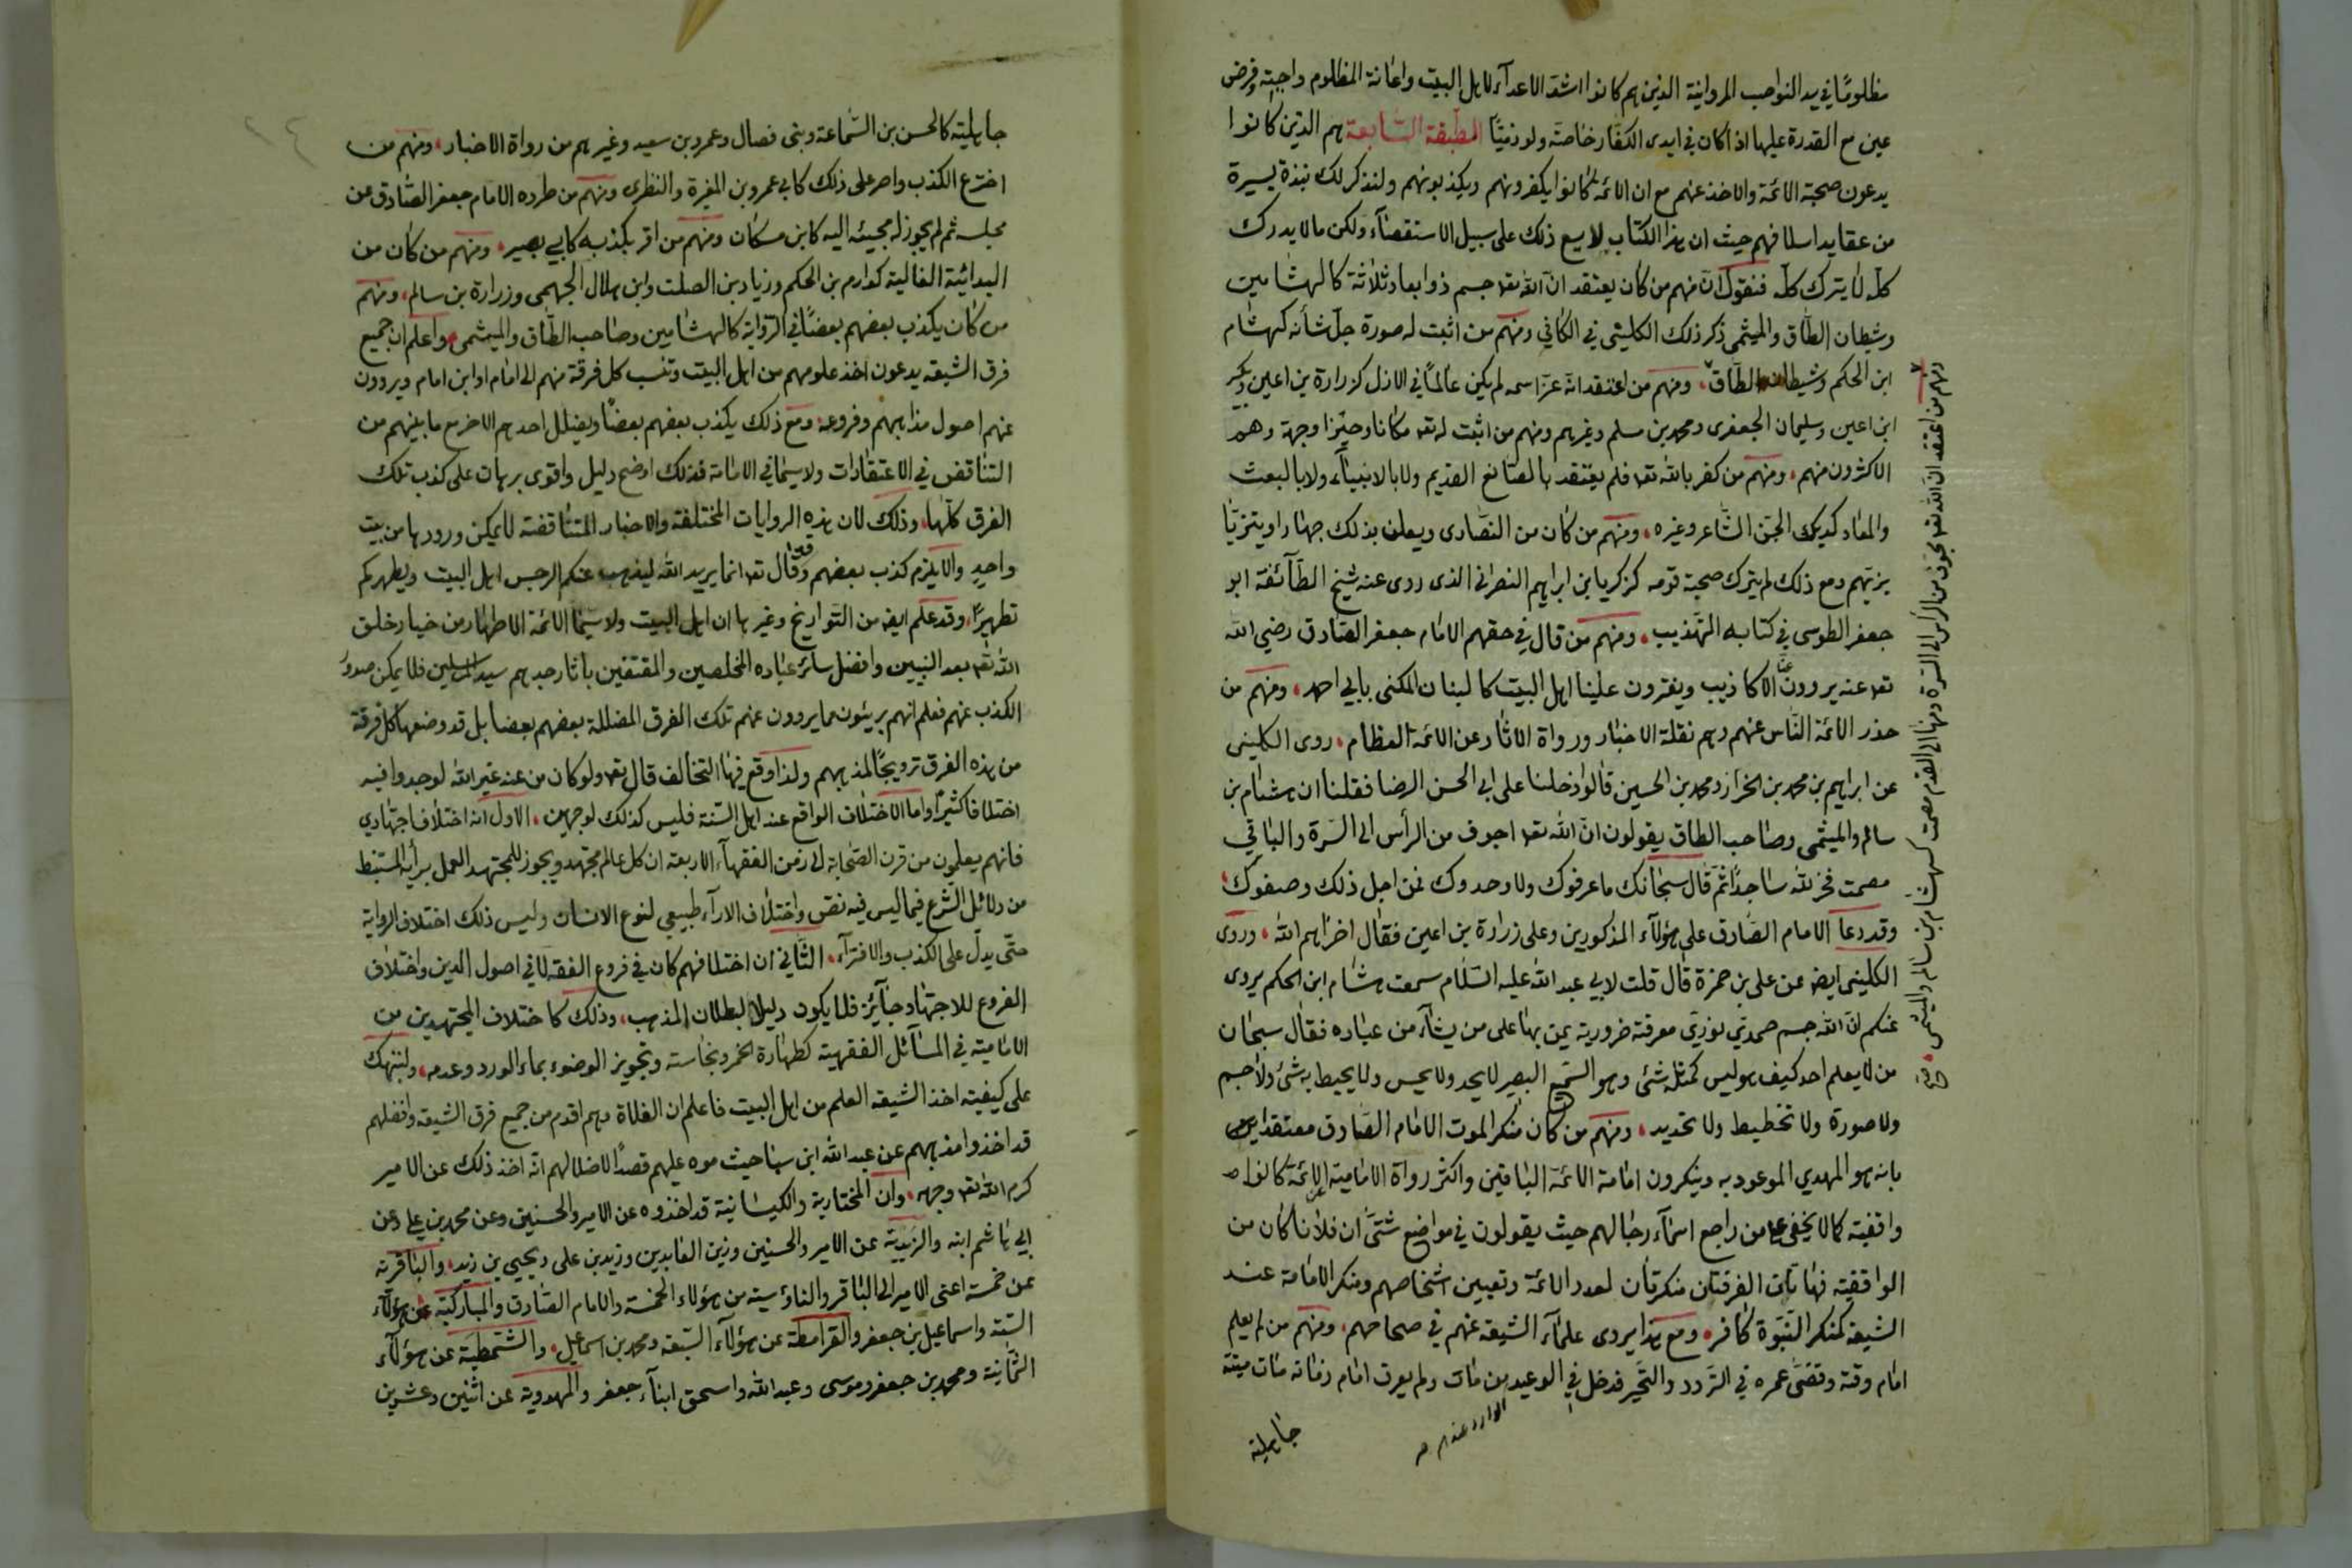 مظلومًا في يد النواصب المروانية الذين هم كانوا اشد الاعدآء لاهل البيت واعانة المظلوم واجبة وفرض
عين مع القدرة عليها اذا كان في ايدى الكفار خاصة ولو ذميًّا الطبقة السابعة هم الذين كانوا
يدعون صحبة الائمة والاخذ عنهم مع ان الائمة كانوا يكفرونهم ويكذبونهم ولنذكر لك نبذة يسيرة
من عقايد اسلافهم حيث ان هذا الكتاب لا يسع ذلك على سبيل الاستقصآء ولكن ما لا يدرك
كله لا يترك كله فنقول ان منهم من كان يعتقد ان الله تعا جسم ذو ابعاد ثلاثة كالهشامين
وشيطان الطاق والميثمى ذكر ذلك الكلينى في الكافي ومنهم من اثبت له صورة جل شأنه كهشام
ابن الحكم وشيطان الطاق، ومنهم من اعتقد انه عز اسمه لم يكن عالمًا في الازل كزرارة بن اعين وبكير
ابن اعين وسليمان الجعفرى ومحمد بن مسلم وغيرهم ومنهم من اثبت له تعا مكانا وحيزا وجهة وهم
الاكثرون منهم، ومنهم من كفر بالله تعا فلم يعتقد بالصانع القديم ولا بالانبيآء ولا بالبعث
والمعاد كديك الجن الشاعر وغيره، ومنهم من كان من النصارى ويعلن بذلك جهارا ويتزيا
بزيهم ومع ذلك لم يترك صحبة قومه كزكريا بن ابراهيم النصرانى الذى روى عنه شيخ الطآئفة ابو
جعفر الطوسى في كتابه التهذيب، ومنهم من قال في حقهم الامام جعفر الصادق رضي الله
تعا عنه يروون عنا الاكاذيب ويفترون علينا اهل البيت كالبنان المكنى بابي احمد، ومنهم من
حذر الائمة الناس عنهم وهم نقلة الاخبار ورواة الاثار عن الائمة العظام، روى الكلينى
عن ابراهيم بن محمد بن الخراز ومحمد بن الحسين قالوا دخلنا على ابي الحسن الرضا فقلنا ان هشام بن
سالم والميثمى وصاحب الطاق يقولون ان الله تعا اجوف من الرأس الى السرة والباقي
مصمت فخر لله ساجدًا ثم قال سبحانك ما عرفوك ولا وحدوك فمن اجل ذلك وصفوك،
وقد دعا الامام الصادق على هؤلآء المذكورين وعلى زرارة بن اعين فقال اخزاهم الله، وروى
الكلينى ايض عن على بن حمزة قال قلت لابي عبد الله عليه السلام سمعت هشام ابن الحكم يروى
عنكم ان الله جسم صمدي نوري معرفته ضرورية يمن بها على من يشآء من عباده فقال سبحان
من لا يعلم احد كيف هو ليس كمثله شئ وهو السميع البصير لا يحد ولا يحس ولا يحيط به شئ ولا جسم
ولا صورة ولا تخطيط ولا تحديد، ومنهم من كان منكرا لموت الامام الصادق معتقدا
بانه هو المهدي الموعود به وينكرون امامة الائمة الباقين واكثر رواة الامامية كانوا
واقفية كما لا يخفى على من راجع اسمآء رجالهم حيث يقولون في مواضع شتى ان فلانا كان من
الواقفية فهاتان الفرقتان منكرتان لعدد الائمة وتعيين اشخاصهم ومنكر الامامة عند
الشيعة كمنكر النبوة كافر، ومع هذا يروى علمآء الشيعة عنهم في صحاحهم، ومنهم من لم يعلم
امام وقته وقضى عمره في التردد والتحير فدخل في الوعيد من مات ولم يعرف امام زمانه مات ميتة
الوارد عندهم صح
جاهلية
ومنهم من اعتقد ان الله تعا مجوف من الرأس الى السرة ومنها الى القدم مصمت كهشام بن سالم والميثمى،
جاهلية كالحسن بن السماعة وبنى فصال وعمرو بن سعيد وغيرهم من رواة الاخبار، ومنهم من
اخترع الكذب واصر على ذلك كابي عمرو بن المغيرة والنظرى ومنهم من طرده الامام جعفر الصادق عن
مجلسه ثم لم يجوز له مجيئه اليه كابن مسكان ومنهم من اقر بكذبه كابي بصير، ومنهم من كان من
البدائية الغالية كدارم بن الحكم وزياد بن الصلت وابن هلال الجهمى وزرارة بن سالم، ومنهم
من كان يكذب بعضهم بعضًا في الرواية كالهشامين وصاحب الطاق والميثمى، واعلم ان جميع
فرق الشيعة يدعون اخذ علومهم من اهل البيت وتنسب كل فرقة منهم الى امام او ابن امام ويروون
عنهم اصول مذاهبهم وفروعه ومع ذلك يكذب بعضهم بعضًا ويضلل احدهم الاخر مع ما بينهم من
التناقض في الاعتقادات ولا سيما في الامامة فذلك اوضح دليل واقوى برهان على كذب تلك
الفرق كلها، وذلك لان هذه الروايات المختلفة والاخبار المتناقضة لا يمكن ورودها من بيت
واحد والا يلزم كذب بعضهم وقد قال تعا انما يريد الله ليذهب عنكم الرجس اهل البيت ويطهركم
تطهيرًا، وقد علم ايض من التواريخ وغيرها ان اهل البيت ولا سيما الائمة الاطهار من خيار خلق
الله تعا بعد النبيين وافضل سائر عباده المخلصين والمقتفين باثار جدهم سيد المرسلين فلا يمكن صدور
الكذب عنهم فعلم انهم بريئون مما يروون عنهم تلك الفرق المضللة بعضهم بعضا بل قد وضعها كل فرقة
من هذه الفرق ترويجًا لمذهبهم ولذا وقع فيها التخالف قال تعا ولو كان من عند غير الله لوجدوا فيه
اختلافا كثيرًا واما الاختلاف الواقع عند اهل السنة فليس كذلك لوجهين، الاول انه اختلاف اجتهادي
فانهم يعلمون من قرن الصحابة الى زمن الفقهآء الاربعة ان كل عالم مجتهد ويجوز للمجتهد العمل برأيه المستنبط
من دلائل الشرع فيما ليس فيه نص واختلاف الارآء طبيعي لنوع الانسان وليس ذلك اختلاف الرواية
حتى يدل على الكذب والافترآء، الثاني ان اختلافهم كان في فروع الفقه لا في اصول الدين واختلاف
الفروع للاجتهاد جآئز فلا يكون دليلا لبطلان المذهب، وذلك كاختلاف المجتهدين من
الامامية في المسآئل الفقهية كطهارة الخمر ونجاسته وتجويز الوضوء بماء الورد وعدمه، ولننبهك
على كيفية اخذ الشيعة العلم من اهل البيت فاعلم ان الغلاة وهم اقدم من جميع فرق الشيعة وافضلهم
قد اخذوا مذهبهم عن عبد الله ابن سبا حيث موه عليهم قصدًا لاضلالهم انه اخذ ذلك عن الامير
كرم الله تعا وجهه، وان المختارية والكيسانية قد اخذوه عن الامير والحسنين وعن محمد بن علي وعن
ابي هاشم ابنه والزيدية عن الامير والحسنين وزين العابدين وزيد بن على ويحيى بن زيد، والباقرية
عن خمسة اعنى الامير الى الباقر والناؤسية من هؤلاء الخمسة والامام الصادق والمباركية عن هؤلآء
الستة واسماعيل بن جعفر والقرامطة عن هؤلآء السبعة ومحمد بن اسماعيل، والشمطية عن هؤلآء
الثمانية ومحمد بن جعفر وموسى وعبد الله واسحق ابنآء جعفر والمهدوية عن اثنين وعشرين